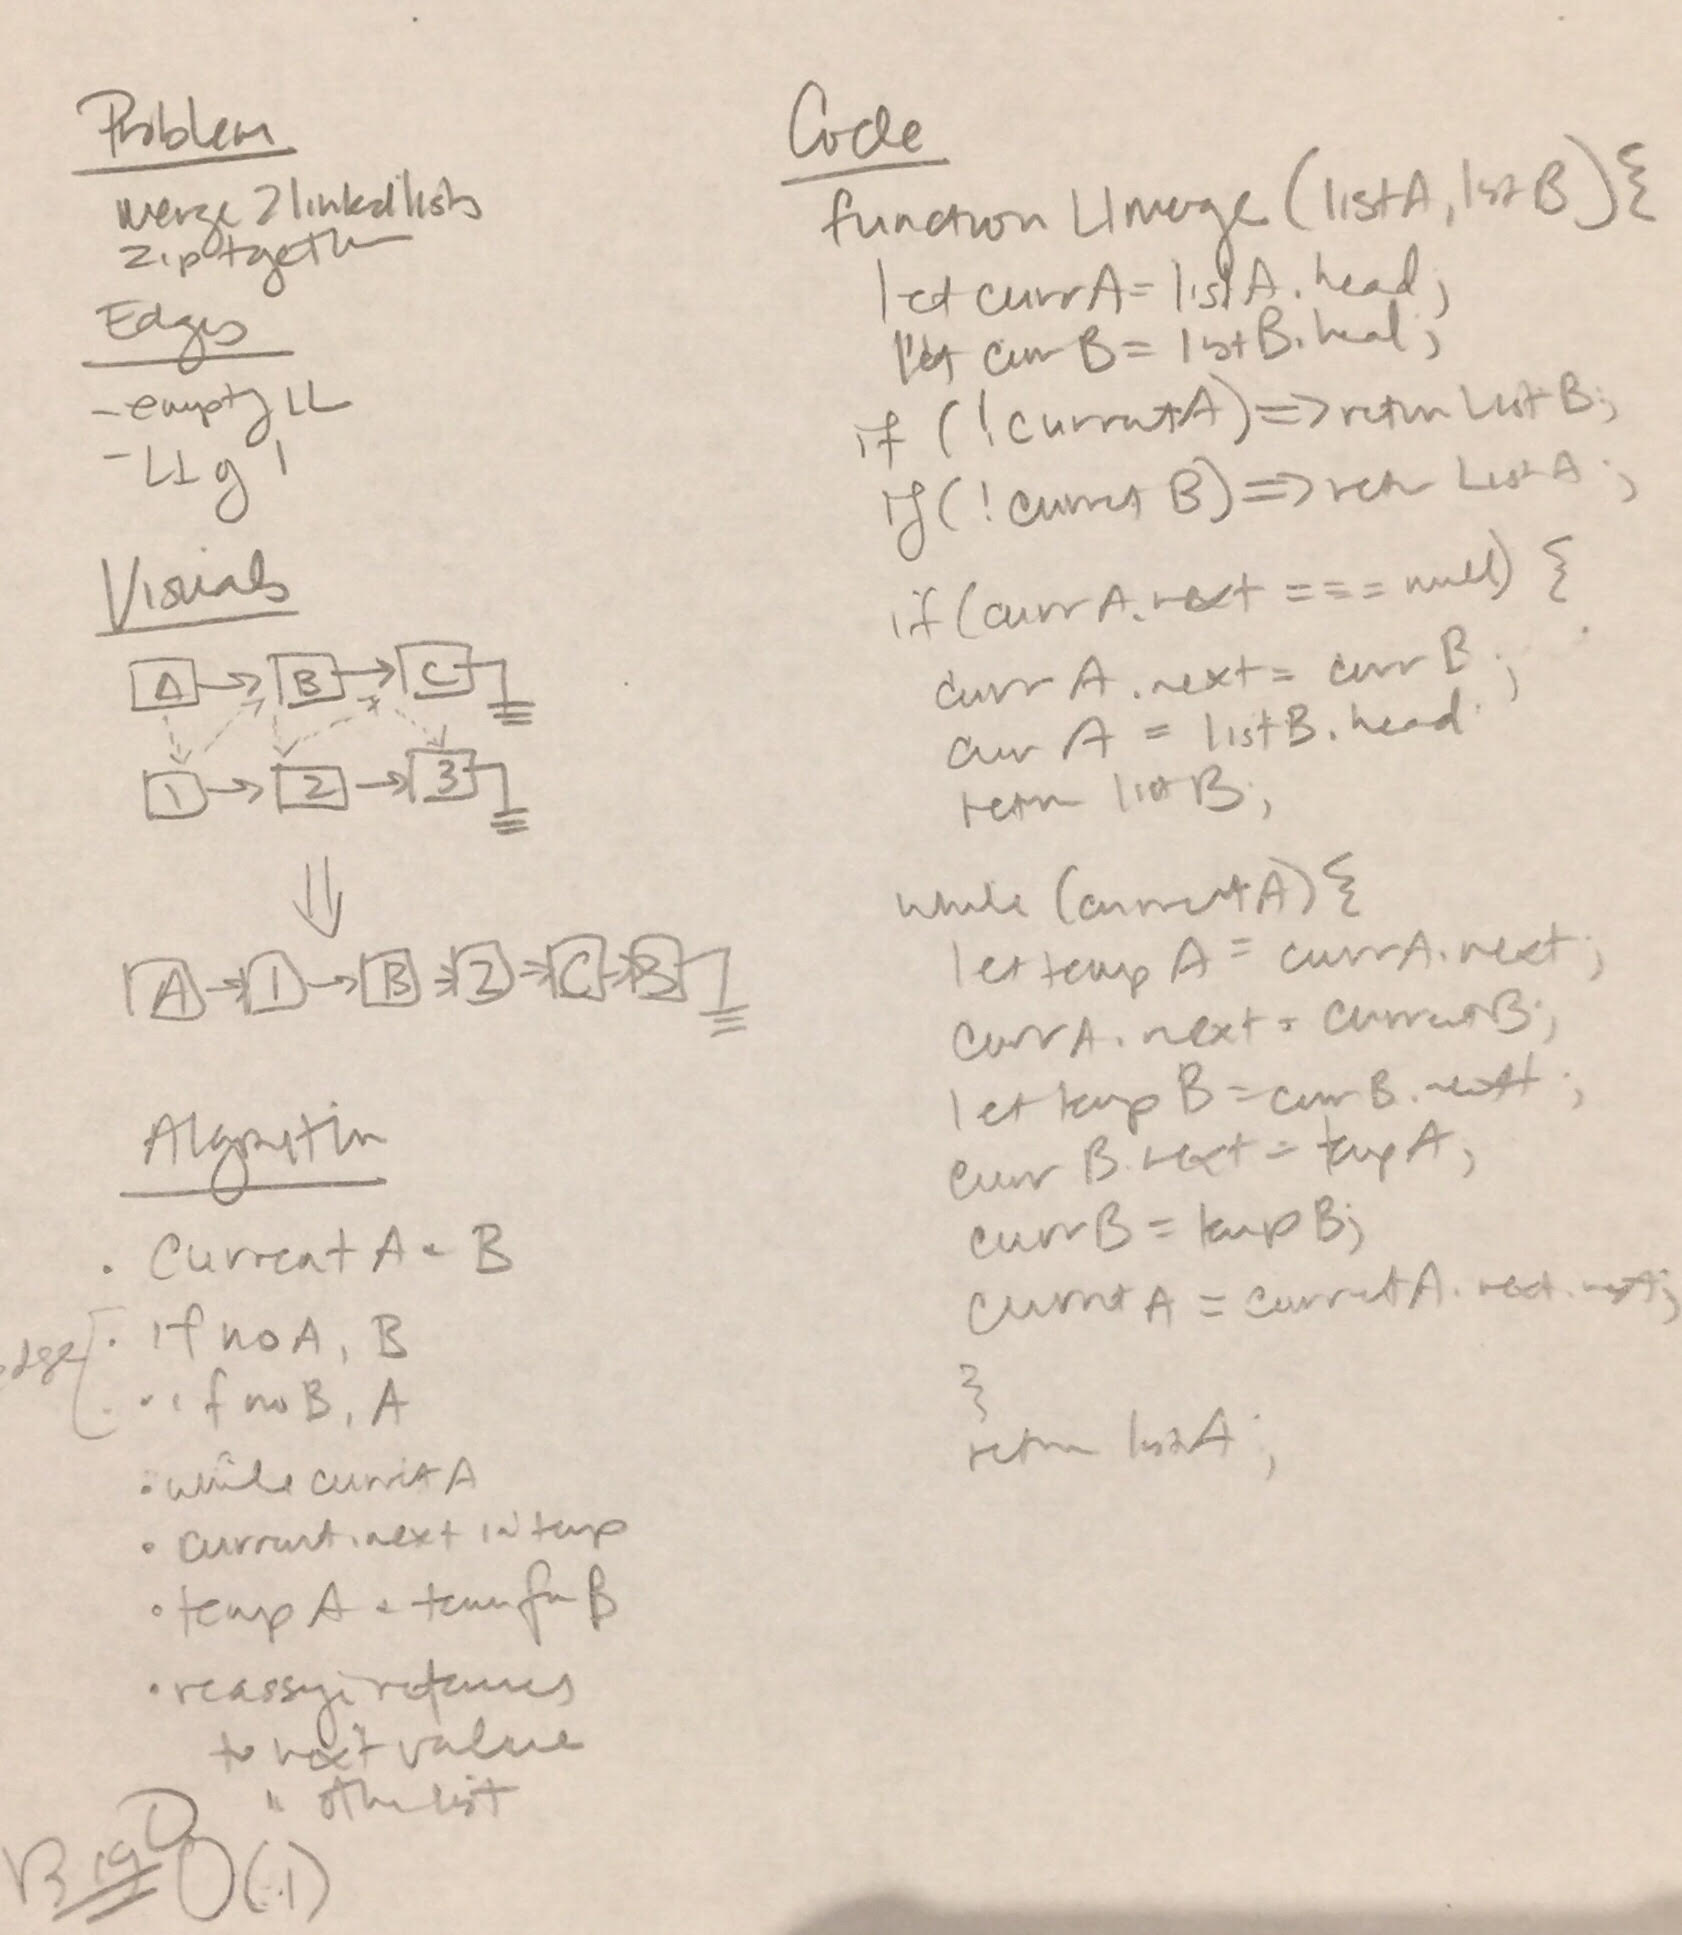 Problem
merge 2 linked lists
zip together
Edges
- empty LL
- LL of 1
Visuals
A → B → C
1 → 2 → 3
A → 1 → B → 2 → C → 3
Algorithm
• Current A + B
edge
• if no A, B
• if no B, A
• while current A
• current.next in temp
• temp A + temp for B
• reassign references
to next value
" other list
Big O
O(1)
Code
function LLmerge (listA, listB) {
let currA = listA.head;
let currB = listB.head;
if (!currentA) => return ListB;
if (!current B) => return ListA;
if (currA.next === null) {
currA.next = currB;
currA = listB.head
return listB;
while (currentA) {
let tempA = currA.next;
currA.next = currentB;
let tempB = currB.next;
currB.next = tempA;
currB = tempB;
current A = currentA.next.next;
}
return listA;